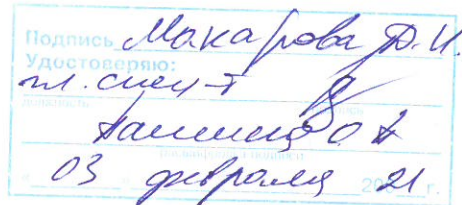 Подпись Макарова Д.И.
Удостоверяю:
гл. спец-т
должность
О А
расшифровка подписи
" 03 " февраля 2021 г.